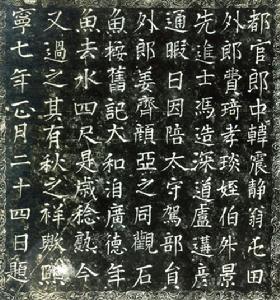 都官郎中韓震靜翁屯田
外郎費琦孝琰姪伯升景
先進士馮造深道盧遘彥
通暇日因陪太守駕部員
外郎姜齊顏亞之同觀石
魚桉舊記大和洎廣德年
魚去水四尺是歲稔熟今
又過之其有秋之祥歟熙
寧七年正月二十四日題